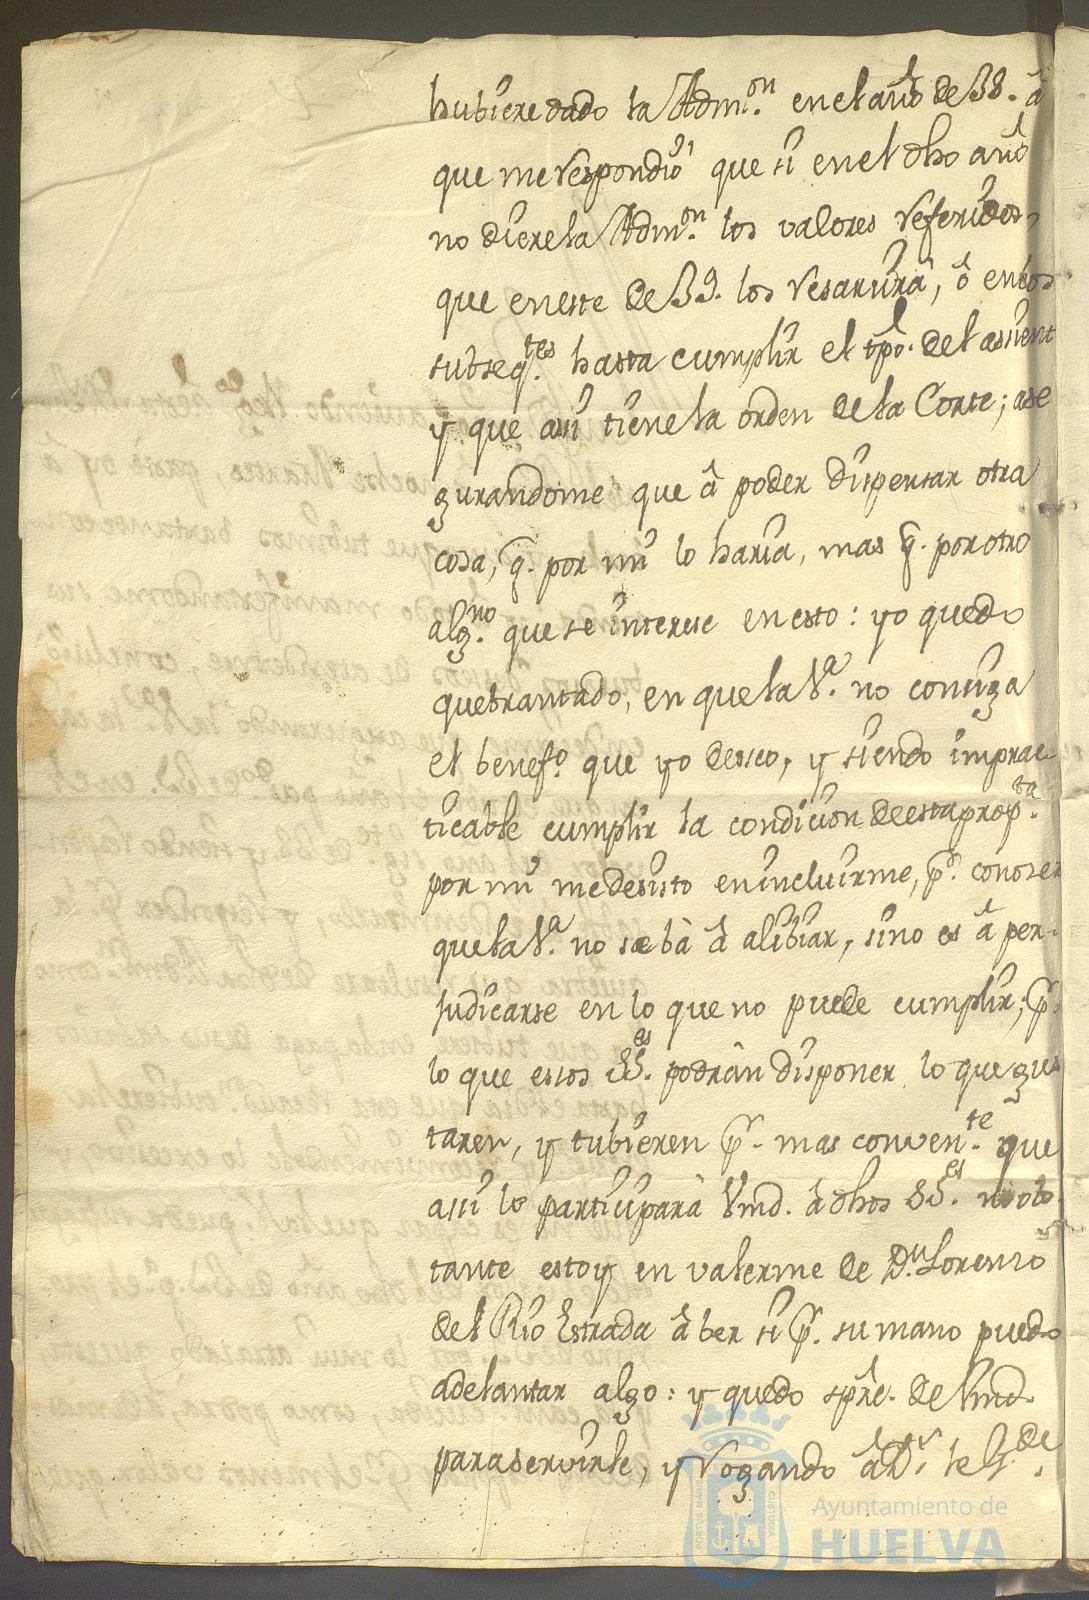 hubiere dado la Admi.on en el año de 38. â
que me respondiò que si en el dho año
no diere la Adm.on los valores referidos,
que en este de 39. los resarcirâ, ô en los
subseq.tes hasta cumplir el tpô. del assient
y que assi tiene la orden de la Corte; ase
gurandome que â poder dispensar otra
cosa, q̃. por mi lo haria, mas q̃. por otro
alg.no que se interese en esto: yo quedo
quebrantado, en que la V.a no consiga
el benef.o que yo deseo, y siendo imprac
ticable cumplir la condicion de esta prop.ta
por mi me desisto en incluirme, p.r conoser
que la V.a no se bà â alibiar, sino es â per-
judicarse en lo que no puede cumplir; p.r
lo que essos SS.es podràn disponer lo que gus
taren, y tubieren p.r mas conven.te que
assi lo participarà Vmd. â dhos SS.es no obs
tante estoy en valerme de D.n Lorenzo
del Rio Estrada â ber si p.r su mano puedo
adelantar algo: y quedo spre. de Vmd
para servirle, y rogando â D.s le g.de
Ayuntamiento de
HUELVA